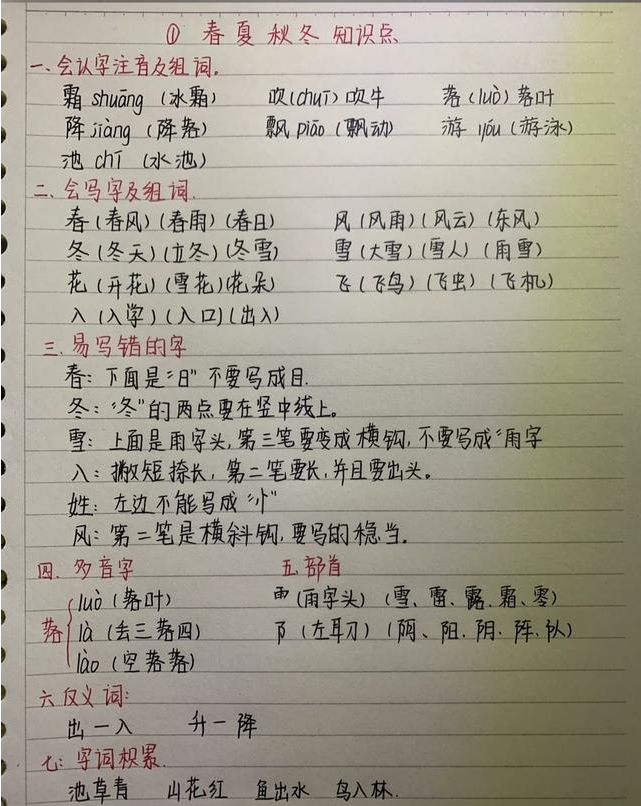 ① 春夏秋冬知识点
一、会认字注音及组词.
霜 shuāng (冰霜) 吹(chuī)吹牛 落(luò)落叶
降 jiàng (降落) 飘 piāo (飘动) 游 yóu (游泳)
池 chí (水池)
二、会写字及组词.
春(春风)(春雨)(春日) 风(风雨)(风云)(东风)
冬(冬天)(立冬)(冬雪) 雪(大雪)(雪人)(雨雪)
花(开花)(雪花)(花朵) 飞(飞鸟)(飞虫)(飞机)
入(入学)(入口)(出入)
三、易写错的字
春：下面是“日”不要写成目.
冬：“冬”的两点要在竖中线上。
雪：上面是雨字头,第三笔要变成横钩,不要写成“雨字
入：撇短捺长，第二笔要长,并且要出头。
姓：左边不能写成“小”
风：第二笔是横斜钩,要写的稳当。
四. 多音字 五.部首
luò (落叶) ⻗(雨字头)(雪、雷、露、霜、零)
落 là (丢三落四) 阝(左耳刀)(阴、阳、阴、阵、队)
lào (空落落)
六反义词:
出—入 升—降
七：字词积累.
池草青 山花红 鱼出水 鸟入林.